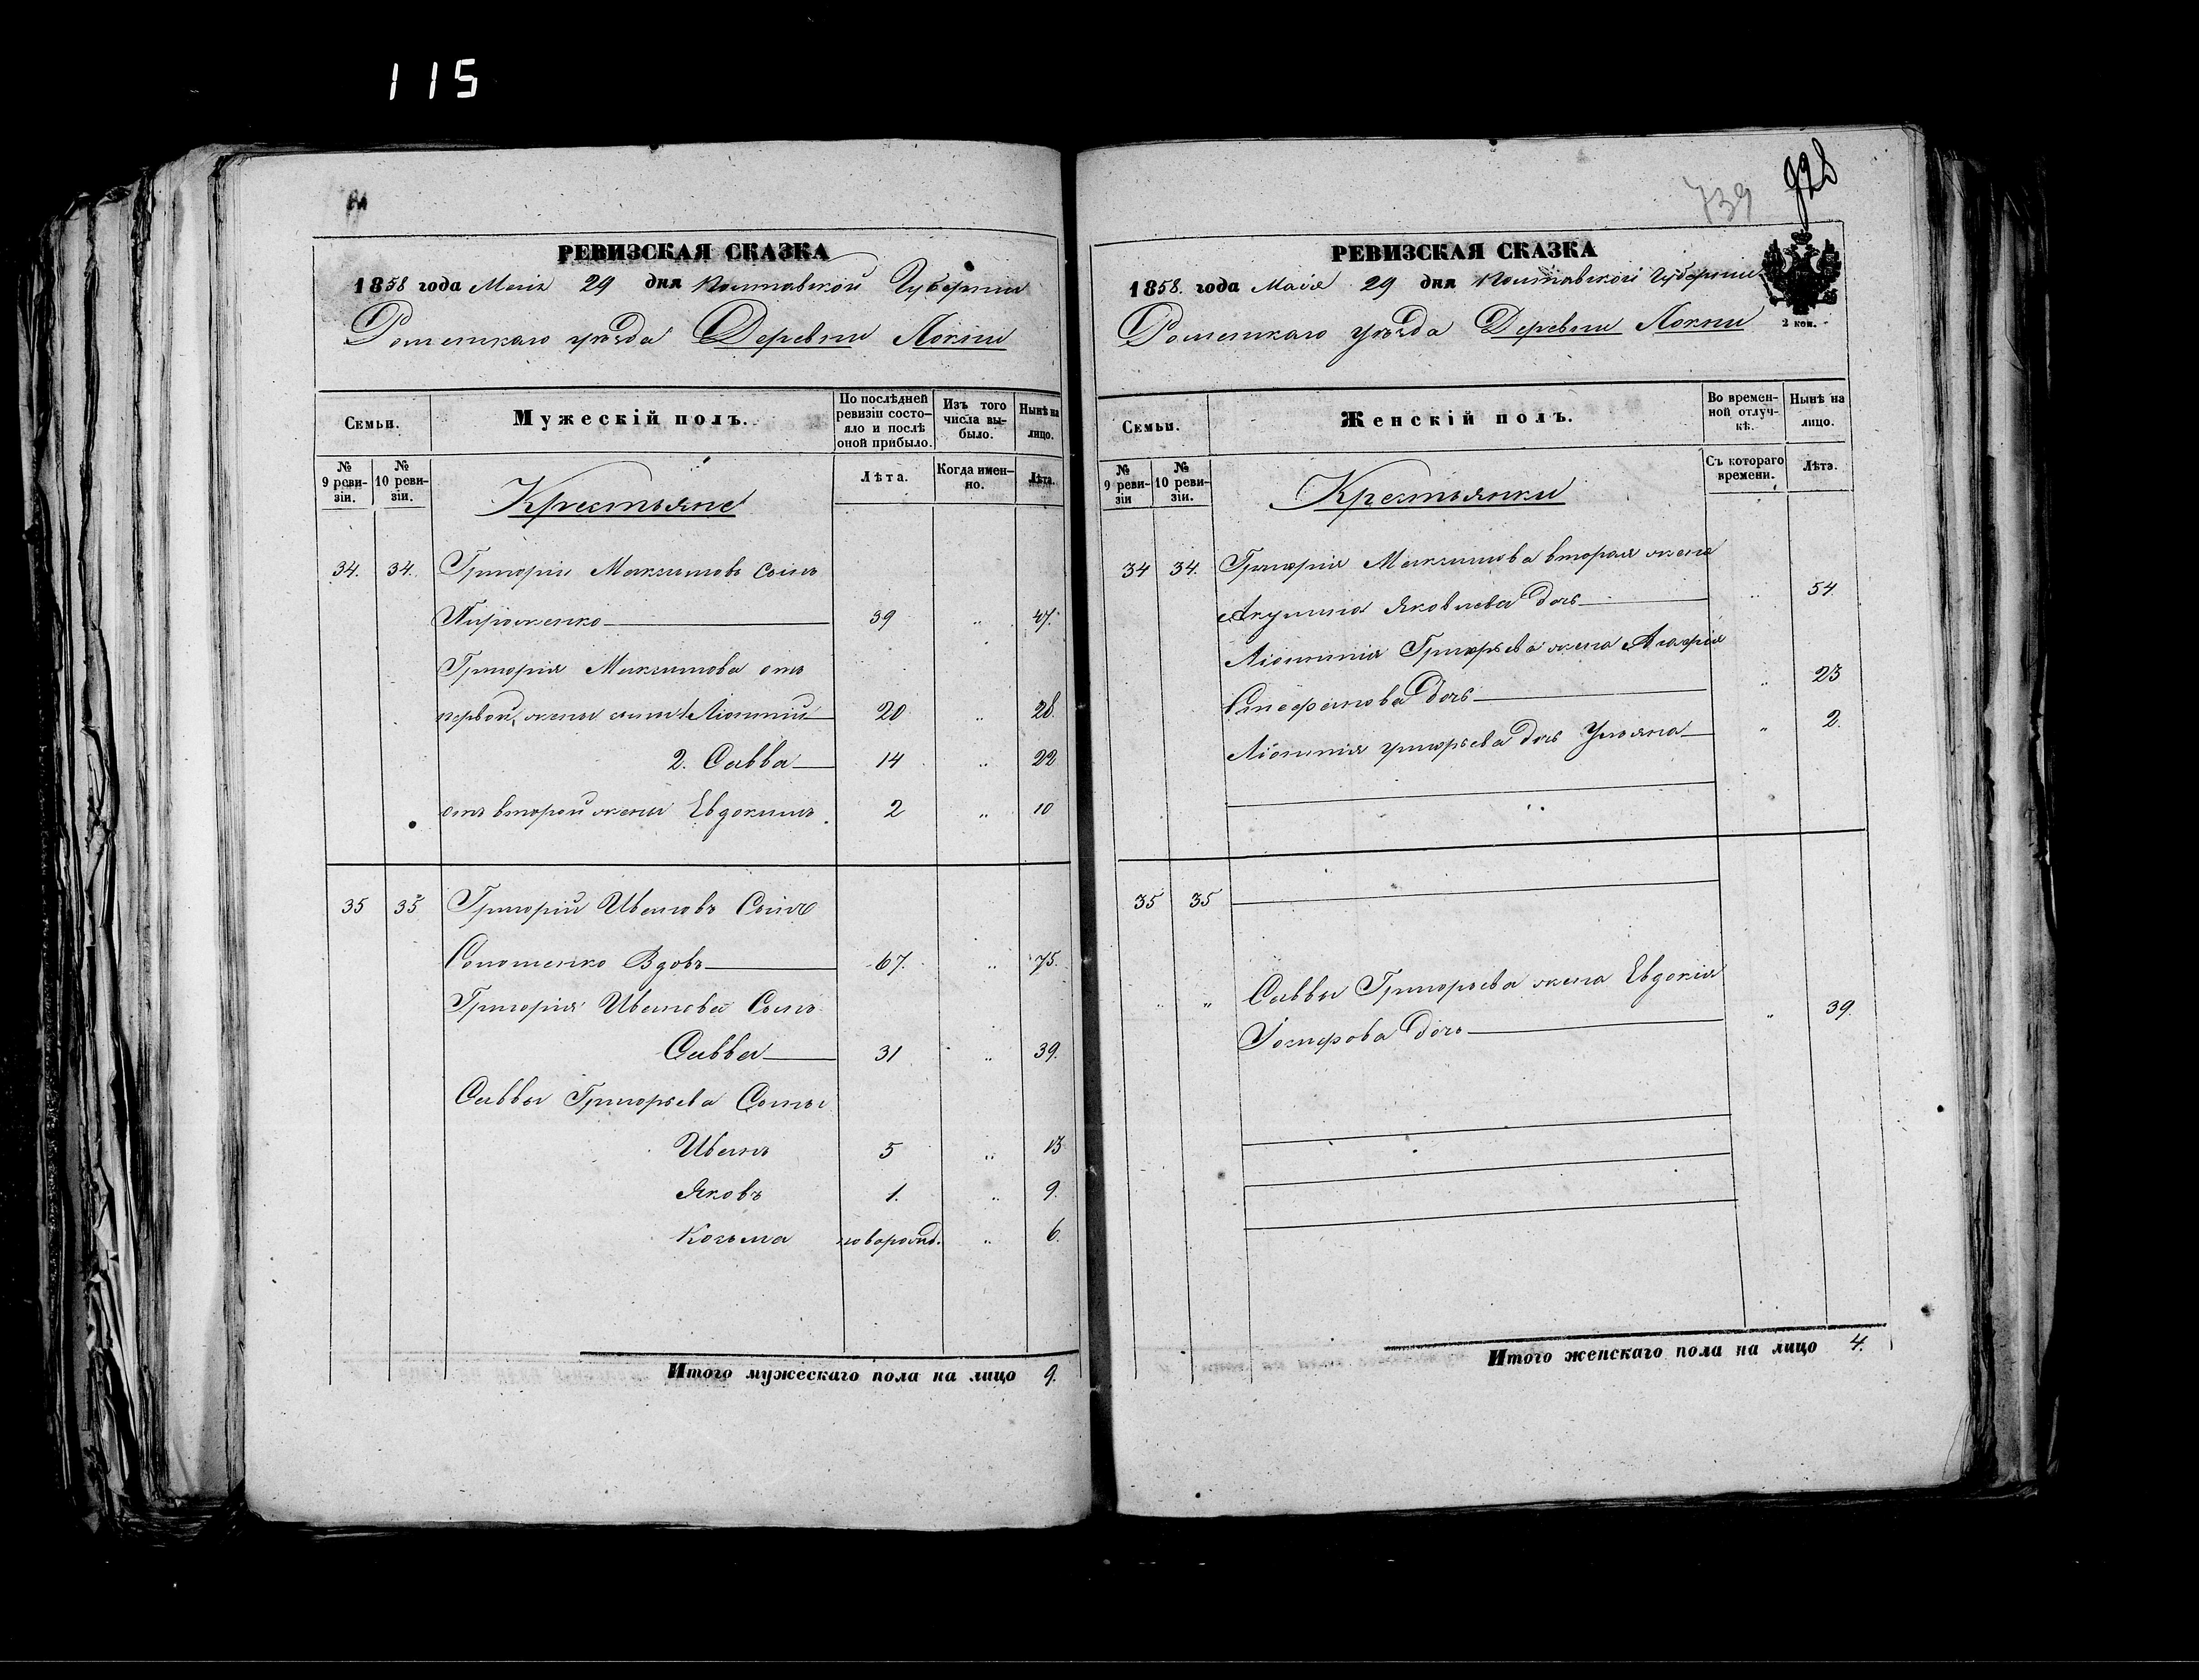 115
РЕВИЗСКАЯ СКАЗКА
1858 года Маія 29 дня Полтавской Губерніи
Роменскаго уѣзда Деревни Локни
Семьи.
Мужескій полъ.
По послѣдней ревизіи состояло и послѣ оной прибыло.
Изъ того числа выбыло.
Нынѣ на лицо.
№ 9 ревизіи.
№ 10 ревизіи.
Крестьяне
Лѣта.
Когда именно.
Лѣта.
34. 34. Григорій Максимовъ Сынъ
39 „ 47.
Григорія Максимова отъ
первой жены сыны 1 Леонтій 20 „ 28.
2. Савва 14 „ 22
отъ второй жены Евдокимъ. 2 „ 10
35 35 Григорій Ивановъ Сынъ
Вдовъ 67. „ 75.
Григорія Иванова Сынъ
Савва 31 „ 39.
Саввы Григорьева Сыны
Иванъ 5 „ 13
Яковъ 1. „ 9.
Козьма новорожд. „ 6.
Итого мужескаго пола на лицо 9.
739 928
РЕВИЗСКАЯ СКАЗКА
1858. года Маія 29 дня Полтавской Губерніи
Роменскаго уѣзда Деревни Локни
2 коп.
Семьи.
Женскій полъ.
Во временной отлучкѣ.
Нынѣ на лицо.
№ 9 ревизіи
№ 10 ревизіи.
Крестьянки
Съ котораго времени.
Лѣта.
34 34. Григорія Максимова вторая жена
Акулина Яковлева дочь „ 54.
Леонтія Григорьева жена Агафія
Стефанова дочь „ 23
Леонтія Григорьева дочь Ульяна „ 2.
35 35
„ „ Саввы Григорьева жена Евдокія
дочь „ 39.
Итого женскаго пола на лицо 4.